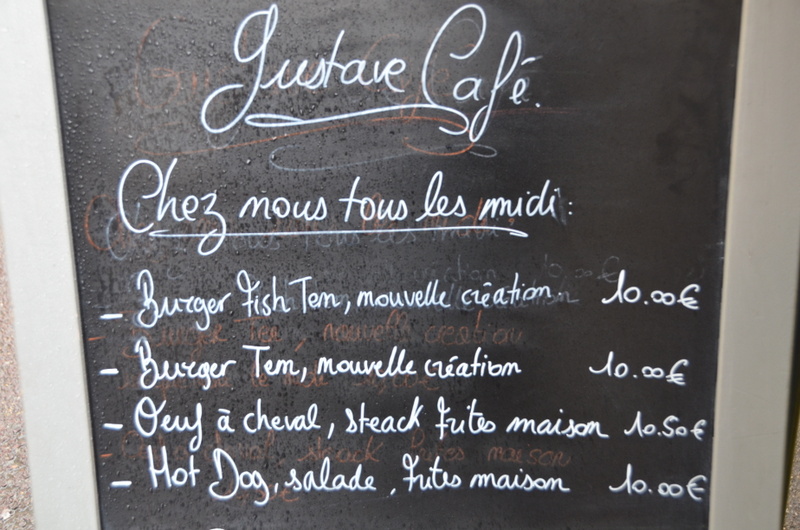 Gustave Café.
Chez nous tous les midi:
- Burger Fish Tem, nouvelle création 10.00€
- Burger Tem, nouvelle création 10.00€
- Oeuf à cheval, steack frites maison 10.50€
- Hot Dog, salade, frites maison 10.00€